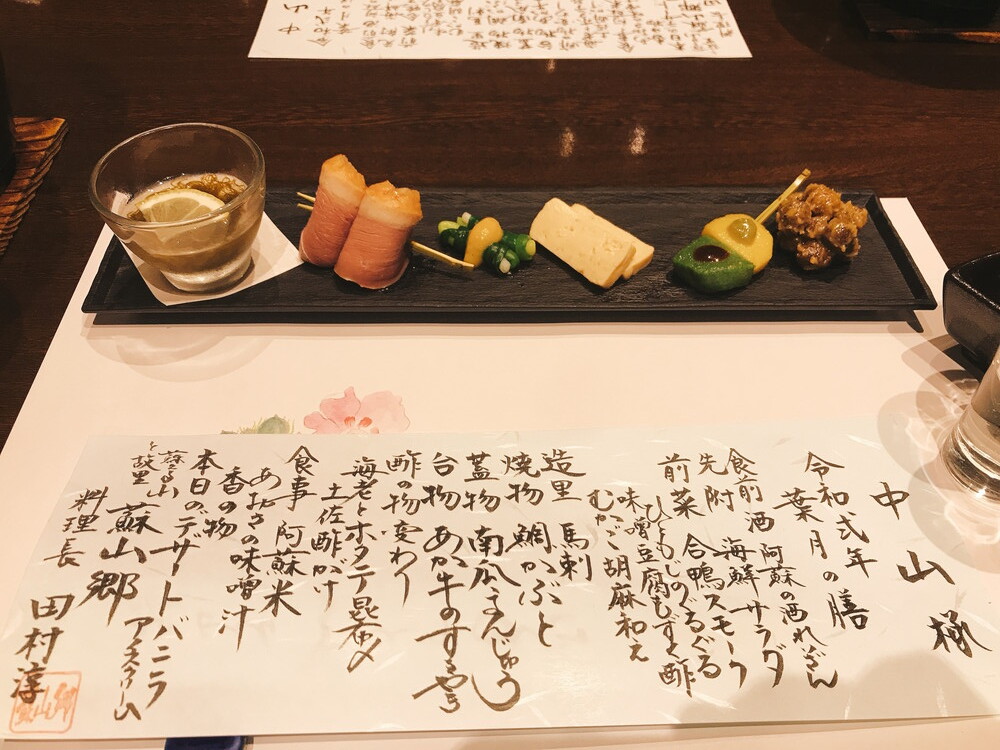 中山様
令和弍年
葉月の膳
食前酒 阿蘇の酒れざん
先附 海鮮サラダ
前菜 合鴨スモーク
ひともじのぐるぐる
味噌豆腐もずく酢
むかご胡麻和え
造里 馬刺
焼物 鯛かぶと
蓋物 南瓜まんじゅう
台物 あか牛のすきやき
酢の物変わり
海老とホタテ昆布〆
土佐酢がけ
食事 阿蘇米
あおさの味噌汁
香の物
本日のデザート バニラ
アイスクリーム
蘇山郷
料理長 田村淳